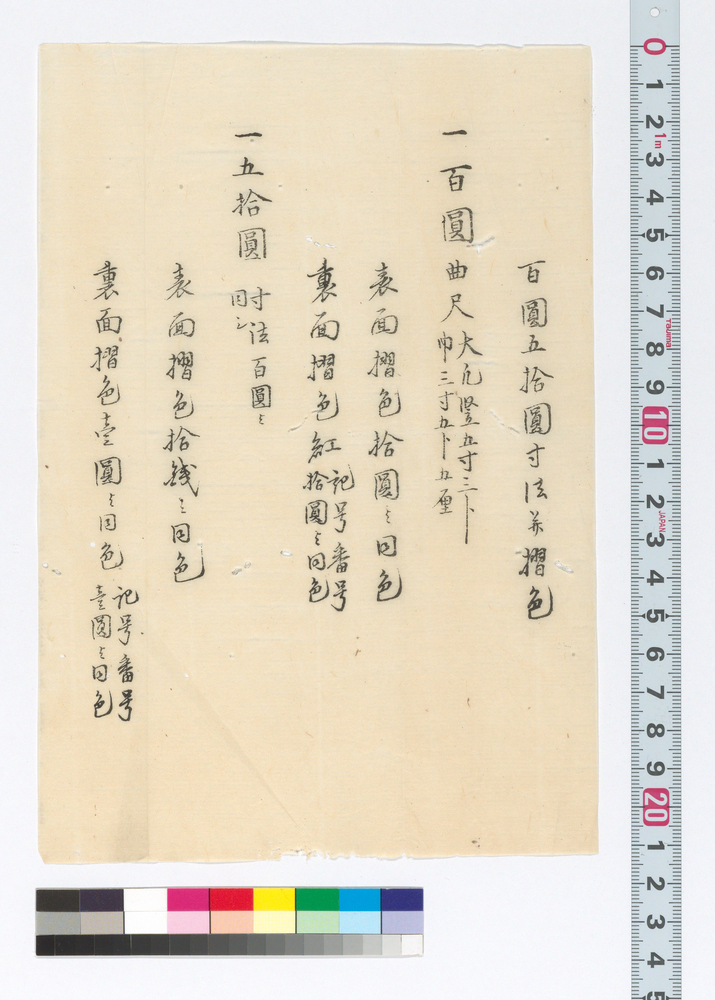 百圓五拾圓寸法并摺色
一百圓曲尺
大凡竪五寸三卜
巾三寸五卜五厘
表面摺色拾圓ミ同色
裏面摺色紅
記号番号
拾圓ミ同色
一五拾圓
寸法百圓ミ
同シ
表面摺色拾錢ミ同色
裏面摺色壹圓ミ同色
記号番号
壹圓ミ同色
0
1
2
1m
3
4
5
6
7
Tajima
8
9
10
1
2
JAPAN
3
4
5
6
7
8
9
20
1
2
3
4
5